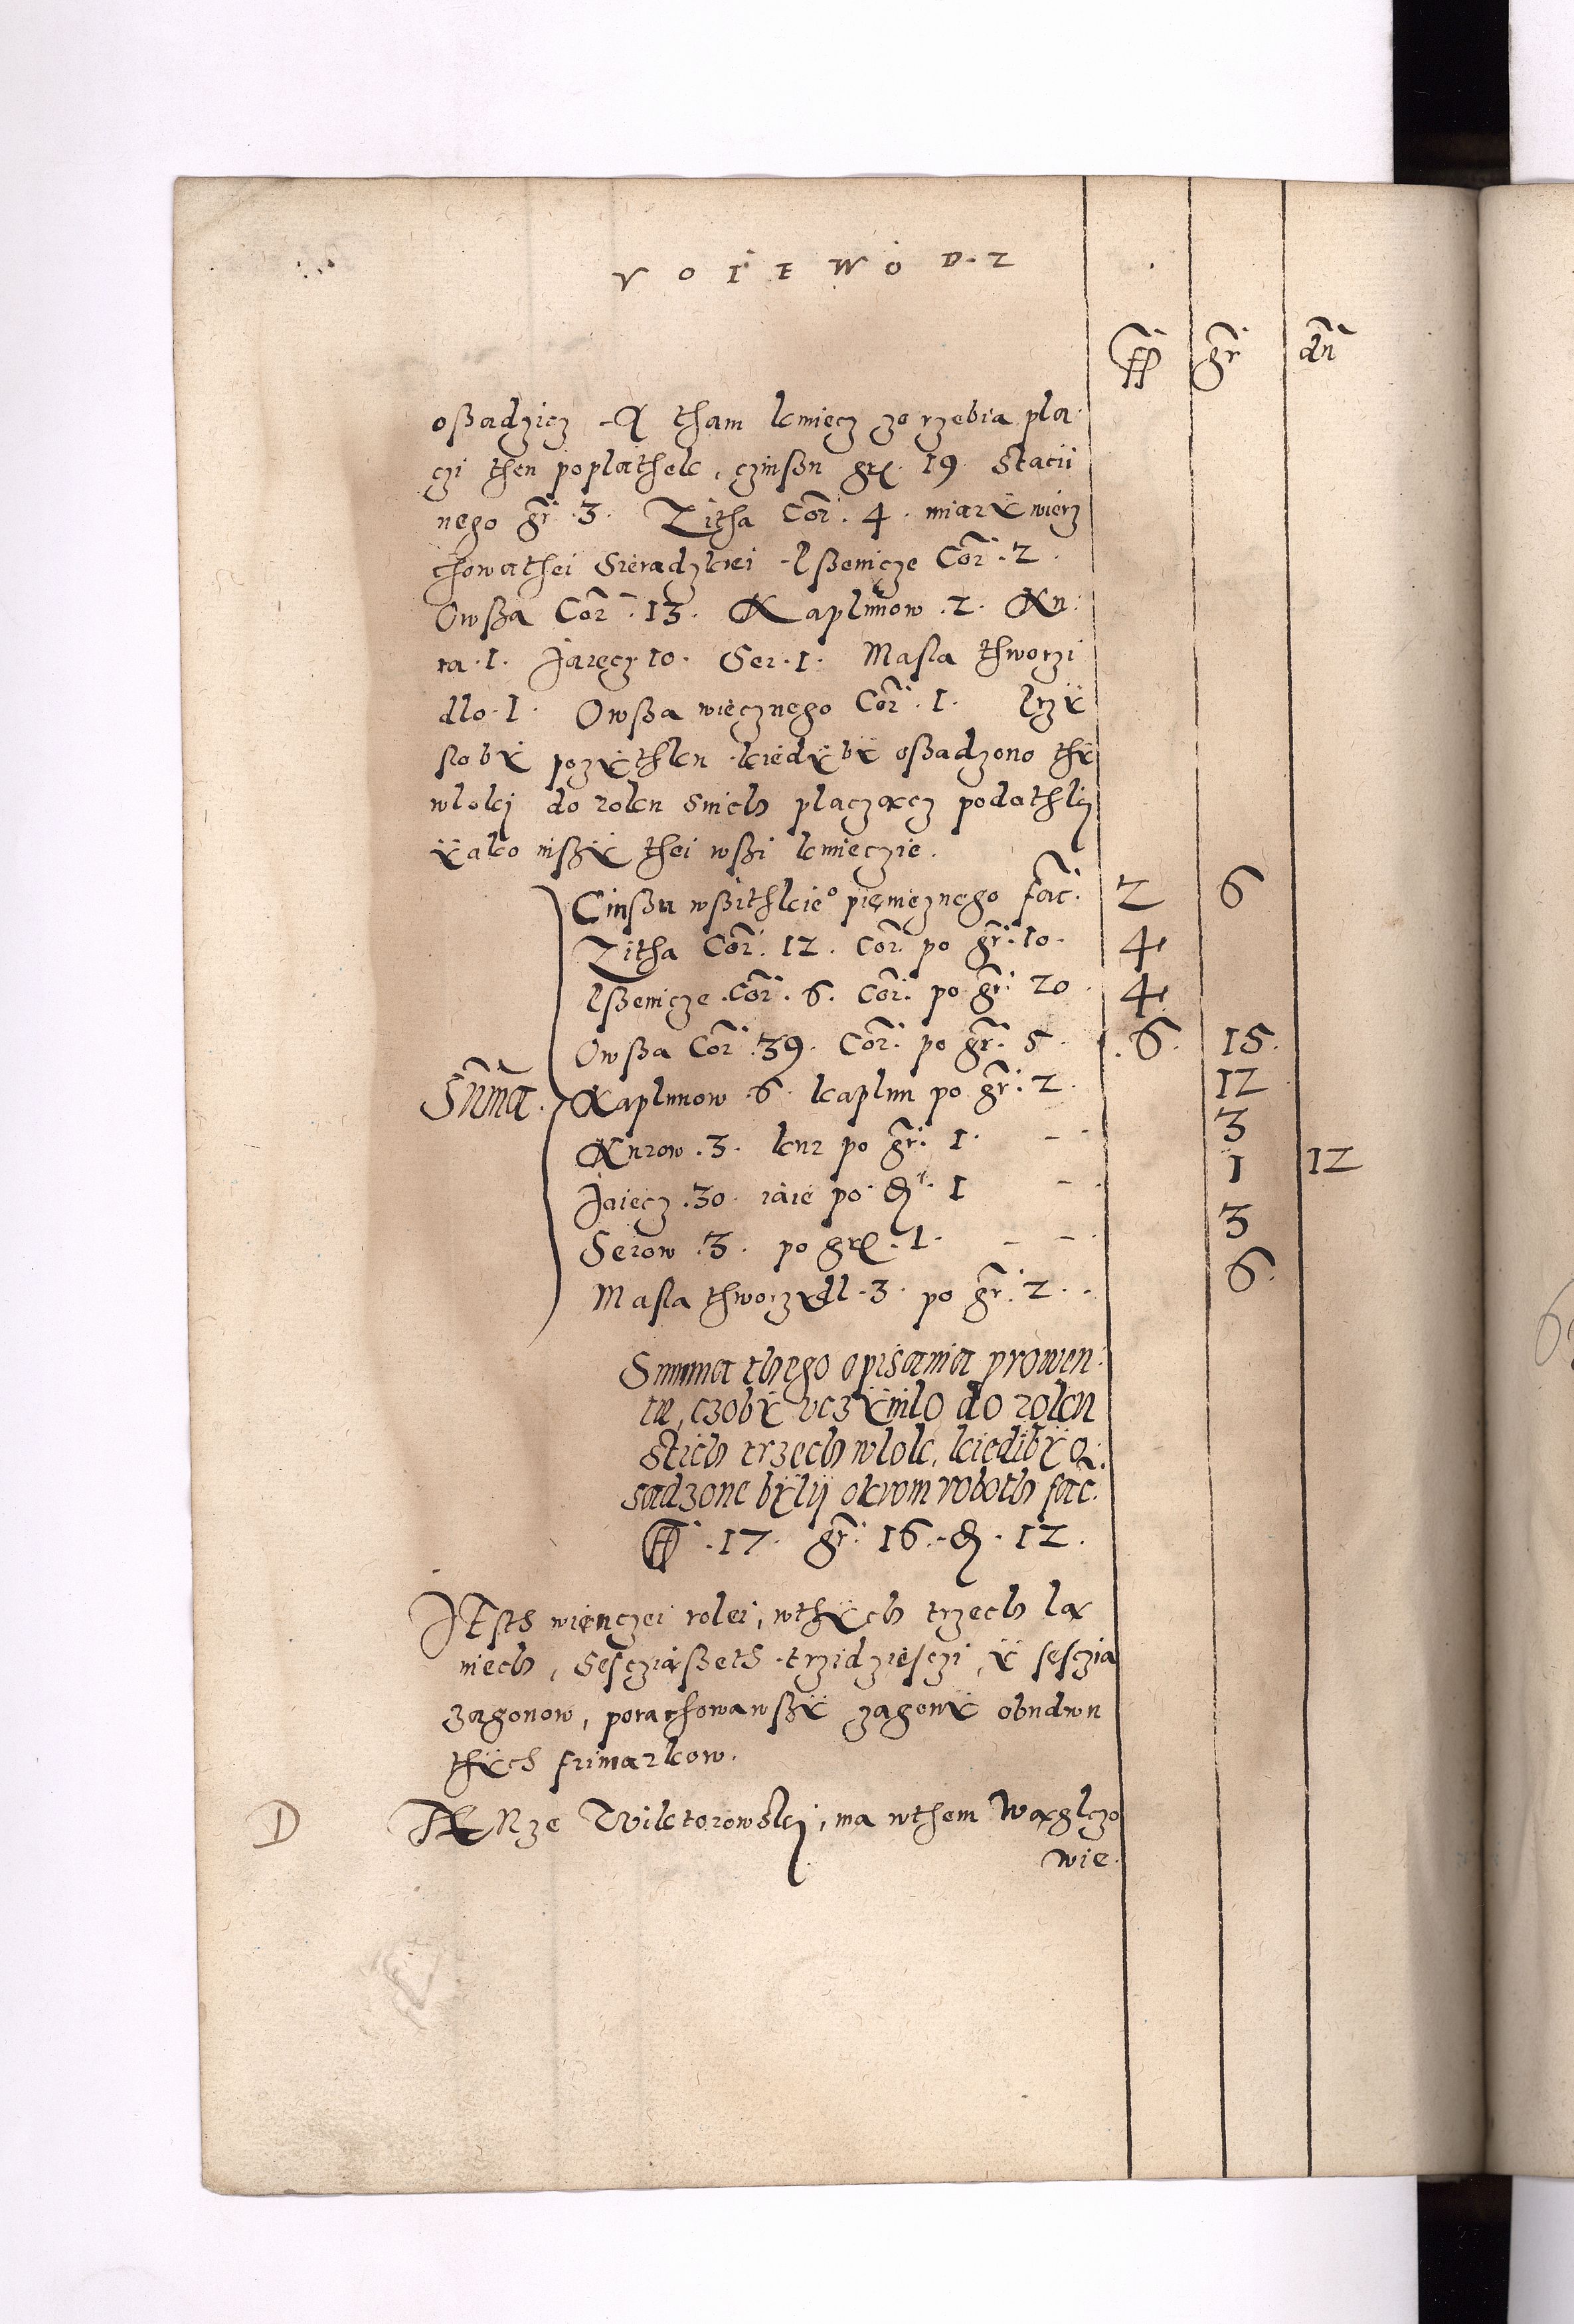 VOIEWODZ
fl gr dn
oßadzicz A tham kmiecz ze rzebia pla
czi then poplathek, czinßu gr 19 Stacii
nego gr 3. Zitha Cor. 4. miarÿ wierz
chowathei Sieradzkiei Pßenicze Cor. 2.
Owßa Cor. 13. Kaplunow .2. Ku
ra .1. Jaiecz 10. Ser .1. Masla thworzi
dlo .1. Owßa wiecznego Cor. 1. Przÿ
slobÿ pozÿthku kiedÿbÿ oßadzono thÿ
wloki do rolku Smich placzacz podathki
ÿako inßÿ thei wßi kmieczie.
Cinßu wßithkieo pienieznego fac. 2 6
Zitha Cor. 12. Cor. po gr. 10. 4
Pßenicze Cor. 6. Cor. po gr. 20. 4
Owßa Cor. 39. Cor. po gr. 5. 6. 15.
Summa. Kaplunow .6. kaplun po gr. 2. 12
Kurow .3. kur po gr. 1. 3
Jaiecz .30. iaie po d. 1 1 12
Serow .3. po gr. 1. 3
Masla thworzÿdl .3. po gr. 2. 6.
Summa thego opisania prowen
tu, czobÿ uczÿnilo do rolku
Stich trzech wlok, kiedibÿ o
sadzone bÿlÿ okrom roboth fac.
fl. 17. gr. 16. d. 12.
JEsth wienczei rolei, wthÿch trzech la
niech, Sescziaßeth trzidziesczi, ÿ sesczia
zagonow, porachowawßÿ zagonÿ obudwu
thÿch frimarkow.
D TENze Wiktorowski, ma wthem Waglczo
wie.